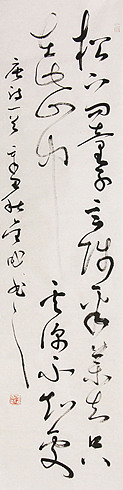 松下問童子言師采藥去只
在此山中雲深不知處
唐詩一首